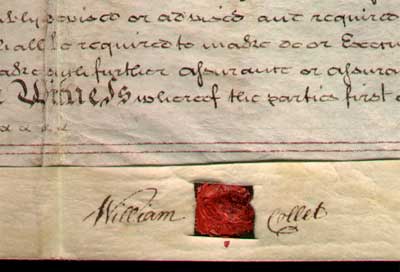 devised or advised and required
shall be required to make do or Execu
further assurance or assura
Witness whereof the parties first
William Collet